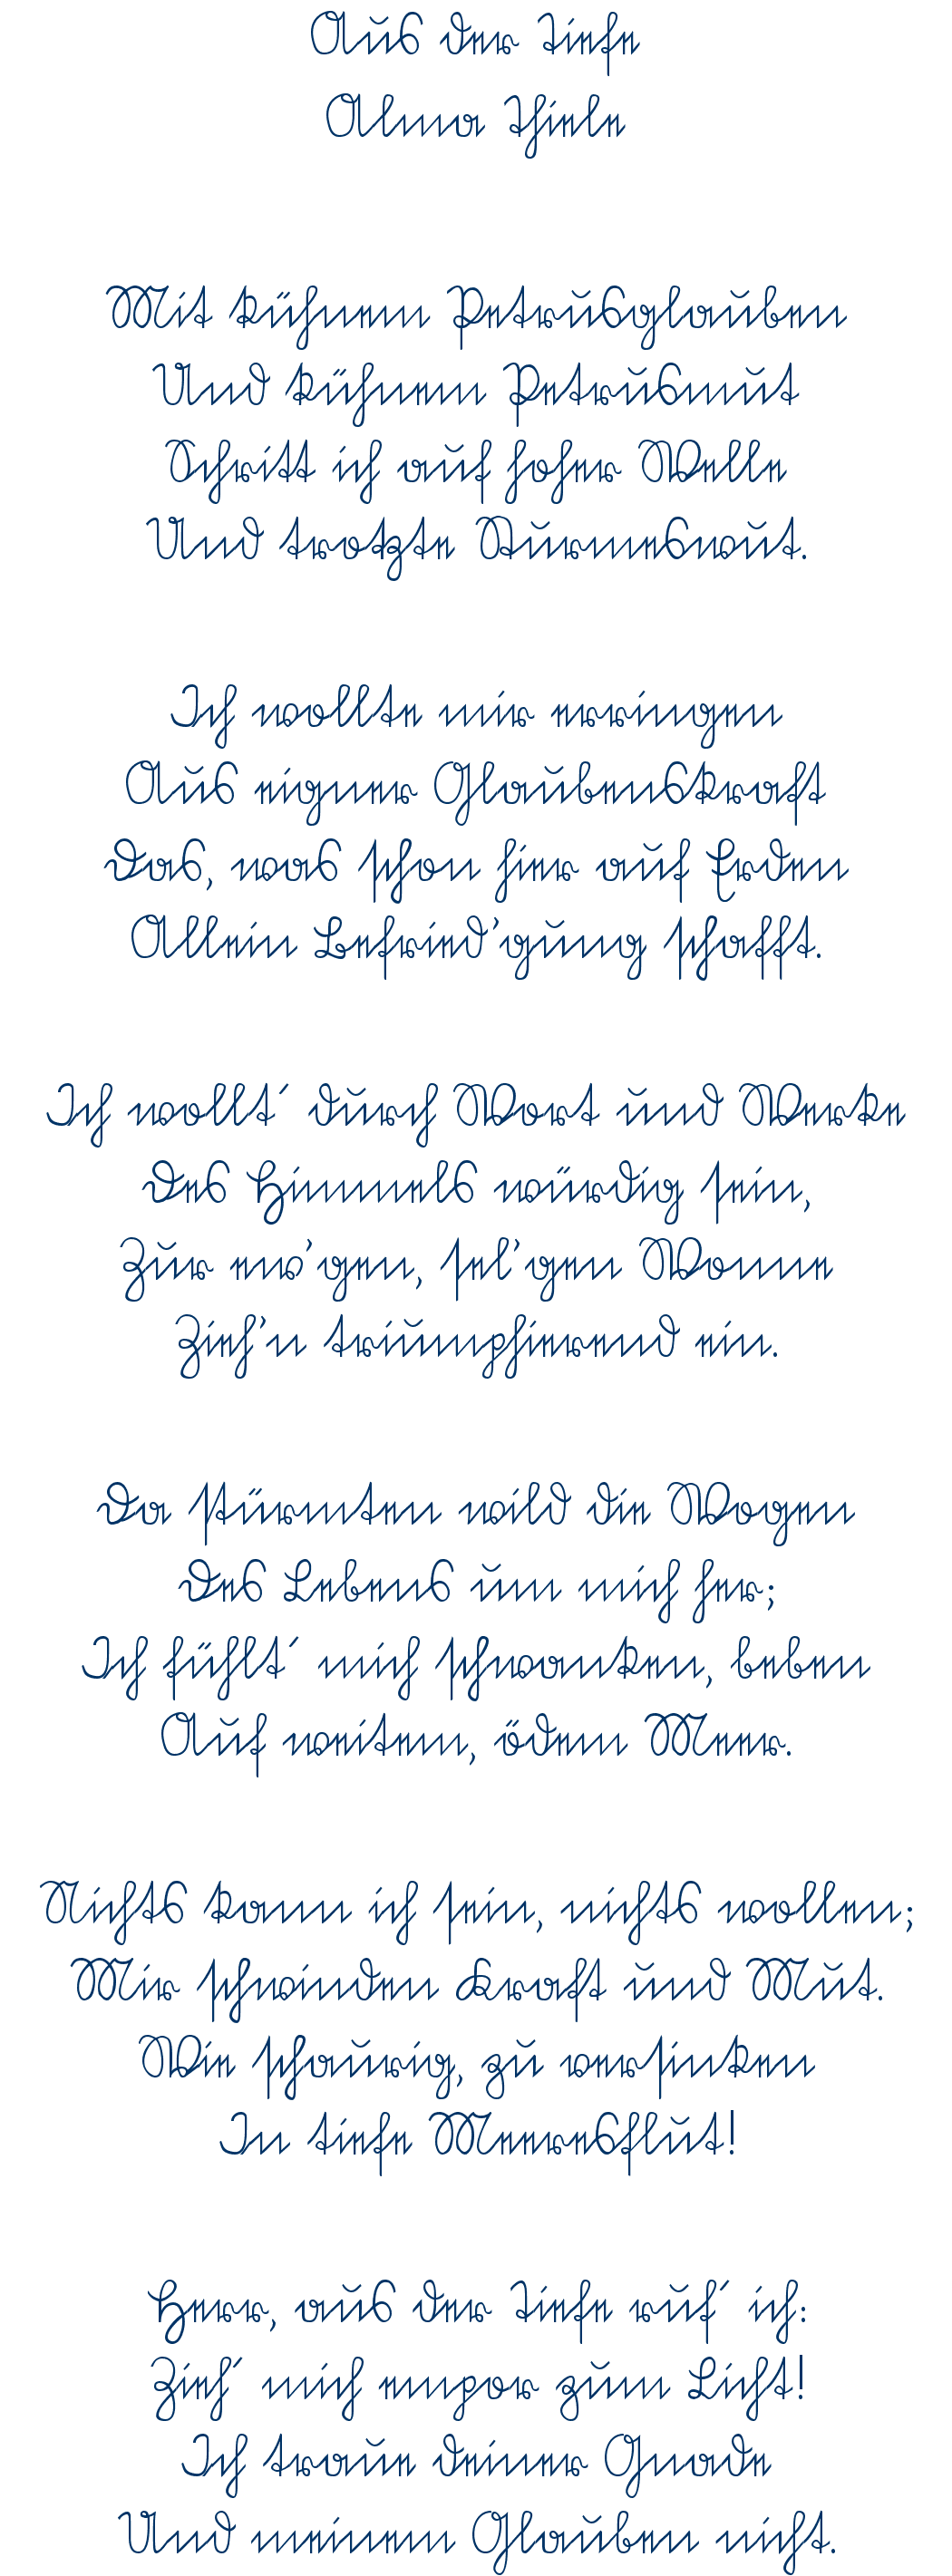 Aus der Tiefe
Alma Thiele
Mit kühnem Petrusglauben
Und kühnem Petrusmut
Schritt ich auf hoher Welle
Und trotzte Sturmeswut.
Ich wollte mir erringen
Aus eigner Glaubenskraft
Das, was schon hier auf Erden
Allein Befried’gung schafft.
Ich wollt´ durch Wort und Werke
Des Himmels würdig sein,
Zur ew’gen, sel’gen Wonne
Zieh’n triumphierend ein.
Da stürmten wild die Wogen
Des Lebens um mich her;
Ich fühlt´ mich schwanken, beben
Auf weitem, ödem Meer.
Nichts kann ich sein, nichts wollen;
Mir schwinden Kraft und Mut.
Wie schaurig, zu versinken
In tiefe Meeresflut!
Herr, aus der Tiefe ruf´ ich:
Zieh´ mich empor zum Licht!
Ich traue deiner Gnade
Und meinem Glauben nicht.